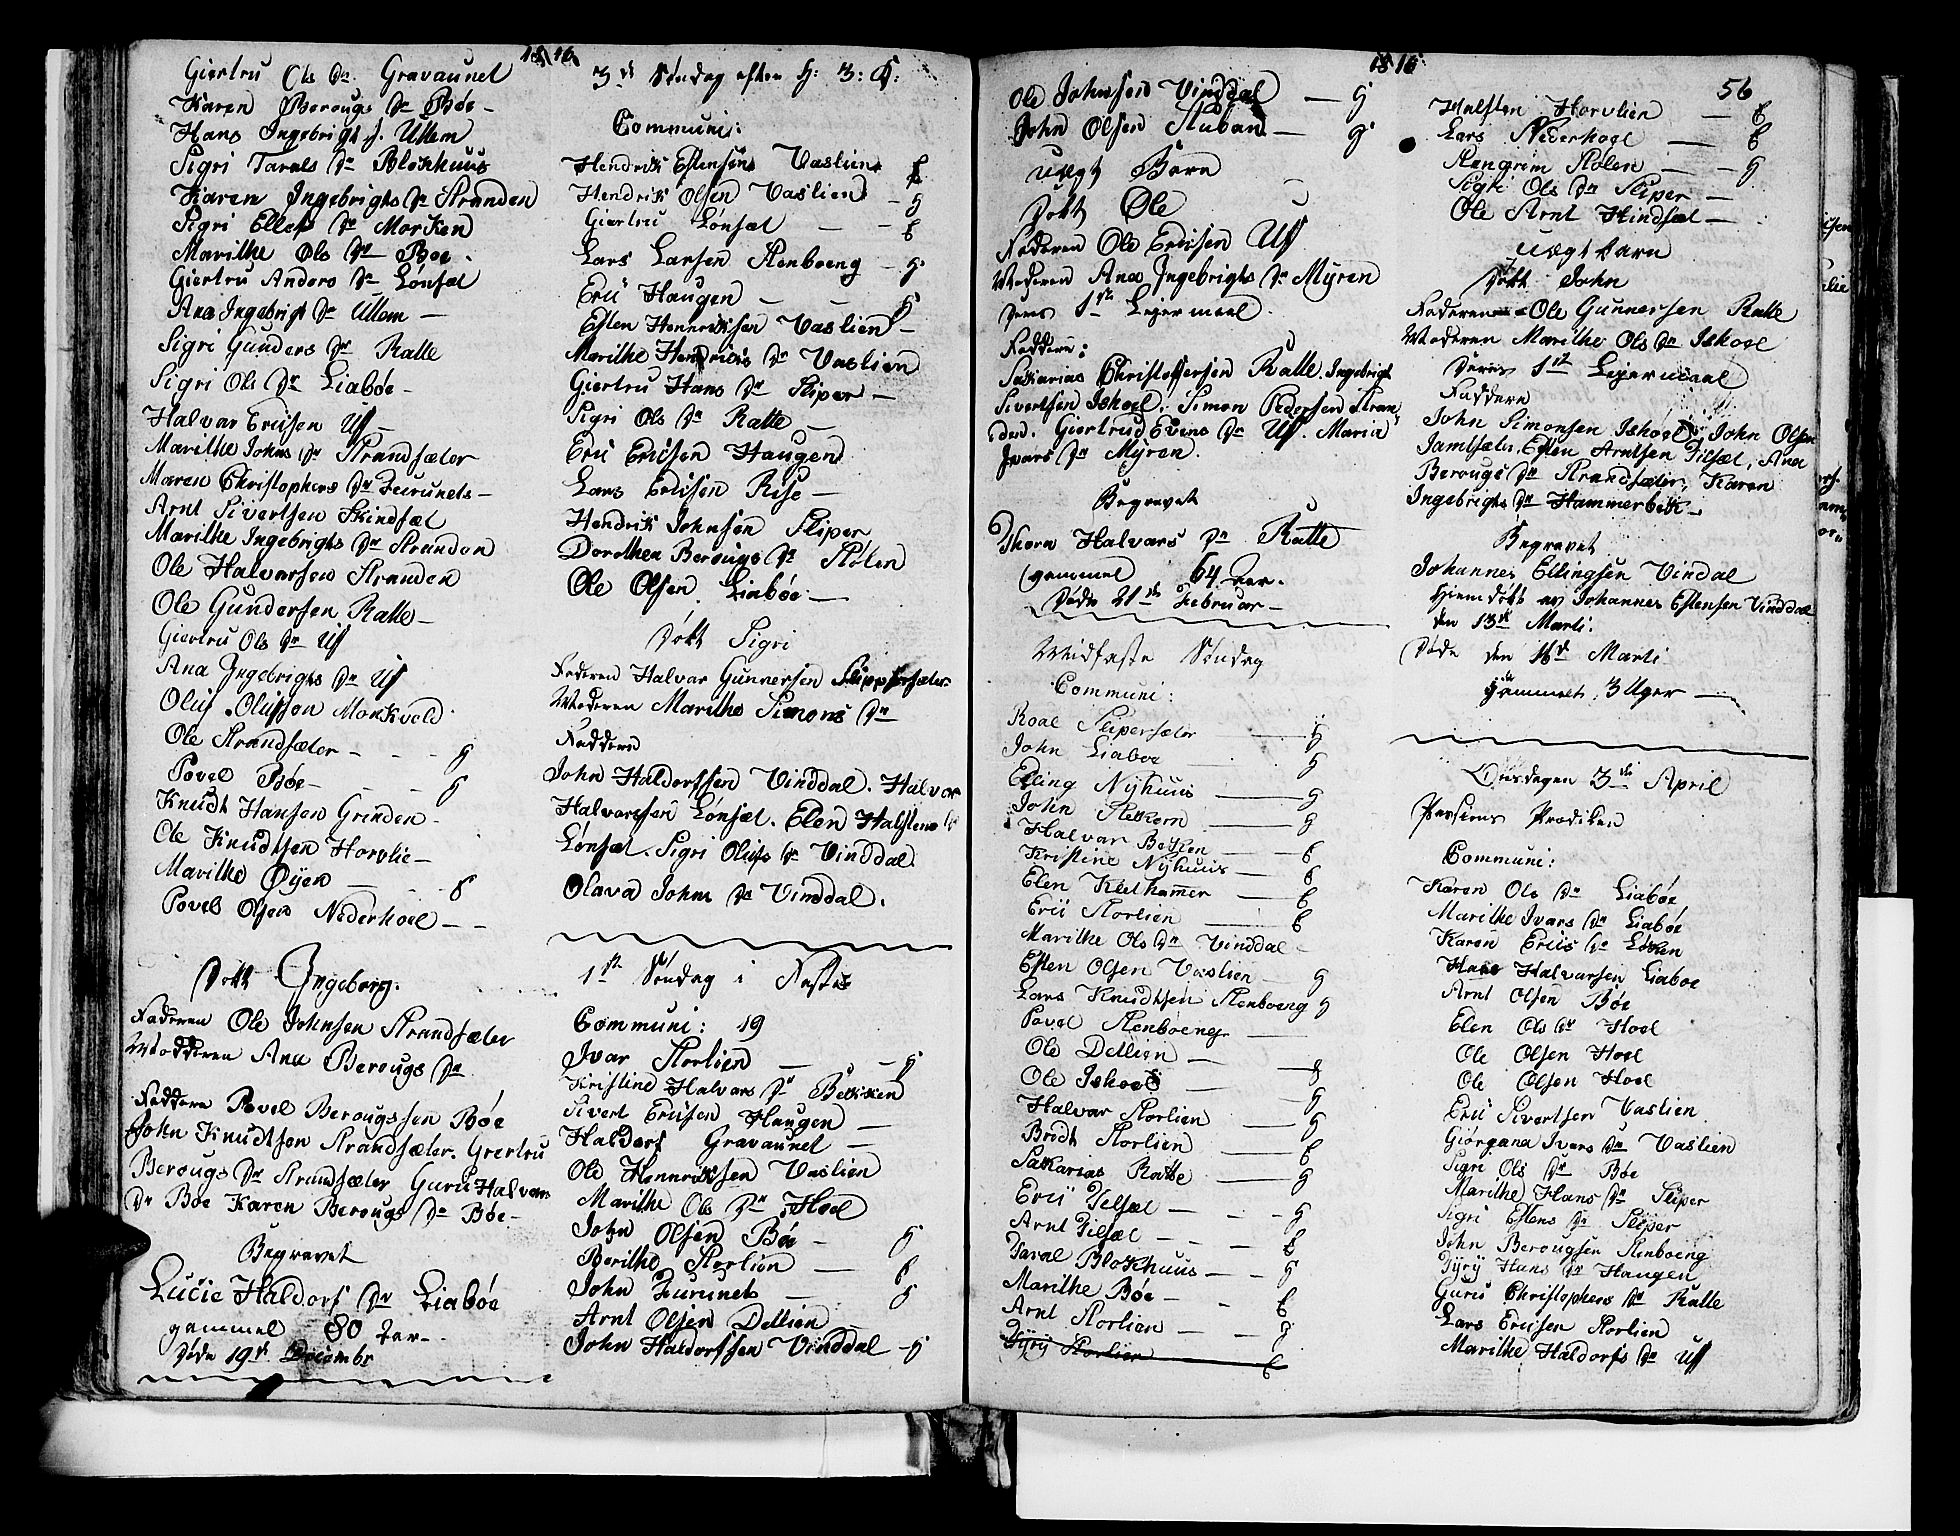 1816
Giertru Ols Dr. Gravaunet
Karen Berougs Dr Bøe
Hans Ingebrigts s. Ullem
Sigri Tarals Dr Blokhuus
Karen Ingebrigts Dr Stranden
Sigri Ellefs Dr Morken
Marithe Ols Dr Boe.
Giertru Anders Dr Lønsæt
Ana Ingebrigt Dr Ullem —
Sigri Gunders Dr Ratte
Sigri Ols Dr Liabøe —
Halvar Eriksen Uf —
Marithe Johns Dr Strandsæter
Maren Christophers Dr Furunets —
Arnt Sivertsen Hindsæt
Marithe Ingebrigts Dr Stranden
Ole Halvorsen Stranden
Ole Gundersen Ratte —
Giertru Ols Dr Uf
Ana Ingebrigts Dr Uf
Oluf Olufson Morkveld
Ole Strandsæter — — — g
Povel Bøe — g
Knudt Hansen Grinden —
Ole Knudtsen Horvlie —
Marithe Øyen — — — 6
Povel Olsen Nederhoel — —
Døbt Ingeborg.
Faderen Ole Johnsen Strandsæter
Modderen Ana Berougs Dr
Faddere Povel Berougssen Bøe
John Knudtsen Strandsæter. Giertru
Berougs Dr Strandsæter Guru Halvars
Dr Bøe Karen Berougs Dr Bøe —
Begravet
Lucie Haldors Dr Liabøe
gammel 80 Aar —
Døde 19d Decembr
3d Søndag efter H: 3: K:
Communi:
Hendrik Estensen Vaslien 6
Hendrik Olsen Vaslien — g
Giertru Lønsæt — — 6
Lars Larsen Stenboeng — g
Eric Haugen — — g
Esten Henriksen Vaslien —
Marithe Henrichs Dr Vaslien
Giertru Hans Dr Sliper —
Sigri Ols Dr Ratte —
Eric Ericsen Haugen
Lars Ericsen Rise —
Hendrik Johnsen Sliper
Dorothea Berougs Dr Stølen
Ole Olsen Liabøe —
Døbt Sigri
Faderen Halvar Gunnersen Slippersæter
Moderen Marithe Simons Dr
Faddere
John Haldorssen Vinddal. Halvar
Halvorssen Lønsæt. Elen Halstens Dr
Lønsæt. Sigri Olufs Dr Vinddal.
Olava Johns Dr Vinddal.
1ste Søndag i Faste
Communi: 19
Ivar Storlien — — g
Kristine Halvars Dr Bekken
Sivert Ericsen Haugen —
Haldors Gravaunet —
Ole Hennriksen Vaslien
Marithe Ols Dr Hoel
John Olsen Bøe — g
Berithe Storlien — 6
John Furunets — g
Arnt Olsen Detlien —
John Haldorssen Vinddal — g
1816
Ole Johnsen Vinddal — g
John Olsen Stuban — g
Uægt Barn
Døbt Ole
Faderen Ole Ericsen Uf
Moderen Ana Ingebrigts Dr Myren
Deres 1ste Lejermaal.
Faddere:
Sakarias Christophersen Ratte. Ingebrigt
Sivertsen Ishoel. Simon Pedersen Stran
den. Giertrud Evens Dr Uf. Maria
Ivars Dr Myren.
Begravet
Thora Halvars Dr Ratte
gammel 64 Aar.
Døde 21de Februar —
Midfaste Søndag
Communi:
Roal Slipersæter — g
John Liaboe — g
Elling Nyhuus — g
John Stekorn — g
Halvar Betzen — 6
Kristine Nyhuus — 6
Elen Klethamer — 6
Eric Storlien — 6
Marithe Ols Dr Vinddal —
Esten Olsen Vaslien — g
Lars Knudtsen Stenboeng g
Povel Stenboeng —
Ole Detlien —
Ole Ishoel — g
Halvar Storlien — g
Brodt Storlien — g
Sakarias Ratte — 6
Eric Gilsæt — — g
Arnt Gilsæt — — g
Taral Blokhuus — — 6
Marithe Bøe — — g
Arnt Storlien — — 6
Gyry Storlien — 6
56
Halsten Horvlien — 6
Lars Nederhoel — 6
Stengrim Stølen — — g
Sigri Ols Dr Sliper —
Ole Arnt Hindsæt —
Uægt Barn
Døbt John
Faderen — Ole Gunnersen Ratte
Moderen Marithe Ols Dr Ishoel
Deres 1ste Lejermaal
Faddere
John Simonsen Ishoel. John Olsen
Jamtsæter, Esten Arntsen Gilsæt, Ana
Berougs Dr Strandsæter, Karen
Ingebrigts Dr Hammerbek —
Begravet
Johannes Ellingsen Vindal
Hjemdøbt av Johannes Estensen Vinddal
den 13de Marti.
Døde den 16de Marti
gammel. 3 Uger —
Onsdagen 3die April
Communi:
Karen Ols Dr Liabøe
Marithe Ivars Dr Liabøe
Karen Erics Dr Løken
Hans Halvarsen Liaboe
Arnt Olsen Bøe
Elen Ols Dr Hoel
Ole Olsen Hoel
Ole Olsen Hoel
Eric Sivertsen Vaslien
Giørgana Ivars Dr Vaslien
Sigri Ols Dr Bøe
Marithe Hans Dr Sliper
Sigri Estens Dr Sliper
John Berougsen Stenboeng
Gyry Hans Dr Haugen
Guru Christophers Dr Ratte
Lars Ericsen Storlien
Marithe Haldorss Dr Uf